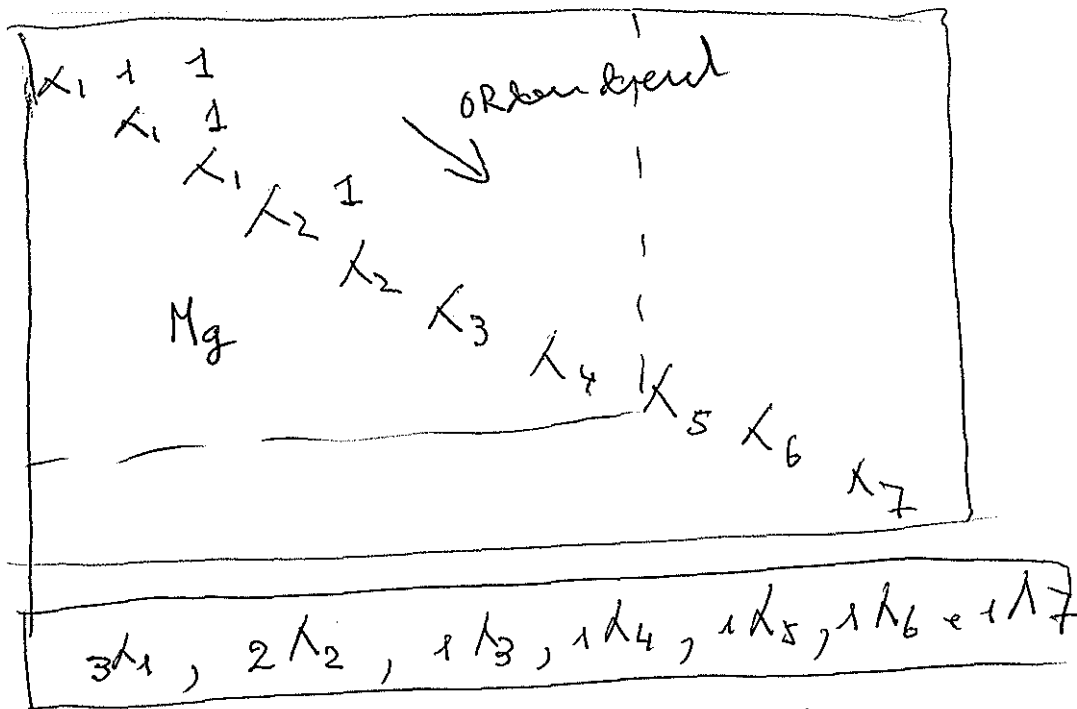 λ₁ 1 1
λ₁ 1
λ₁
λ₂ 1
λ₂
λ₃
Mg
λ₄
λ₅
λ₆
λ₇
3λ₁, 2λ₂, 1λ₃, 1λ₄, 1λ₅, 1λ₆ e 1λ₇